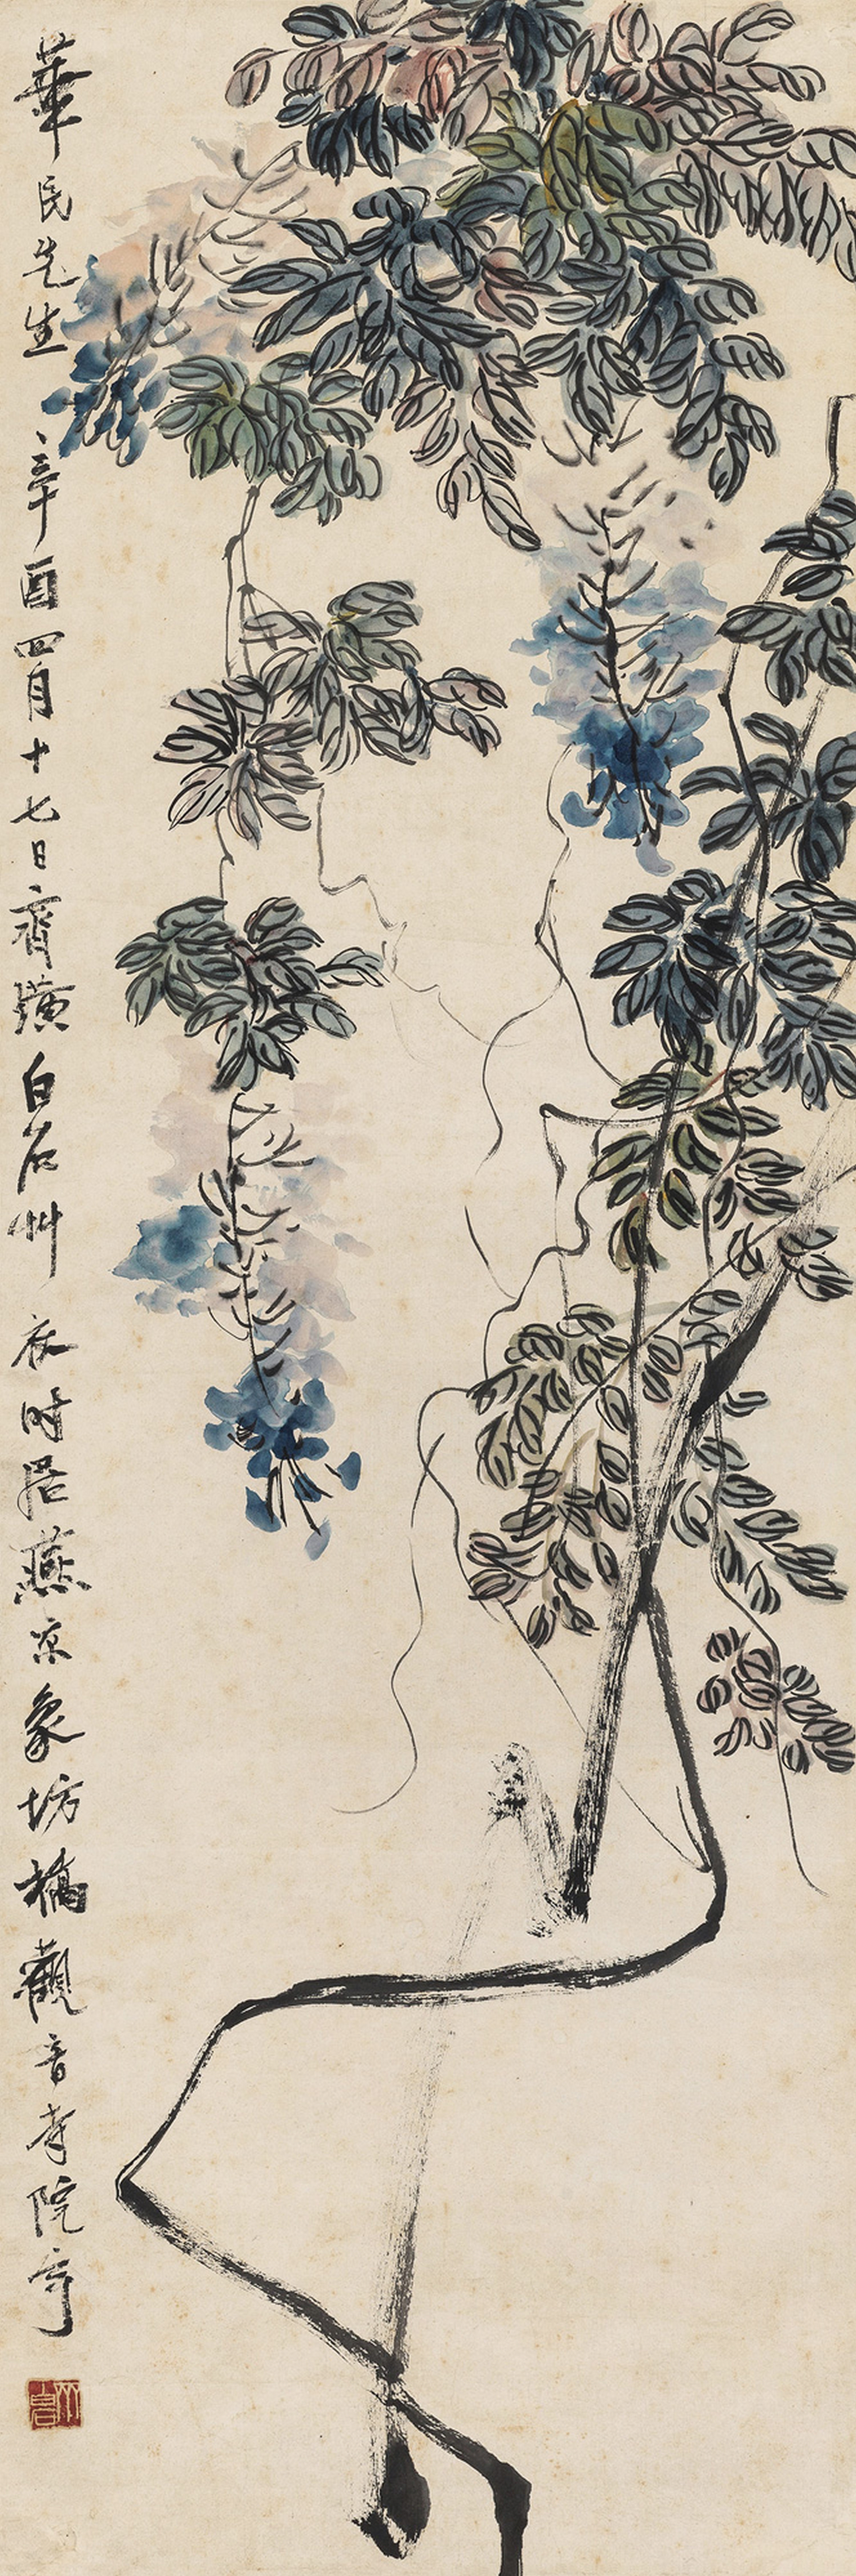 華民先生 辛酉四月十七日齊璜白石艸衣時居燕京象坊橋觀音寺院